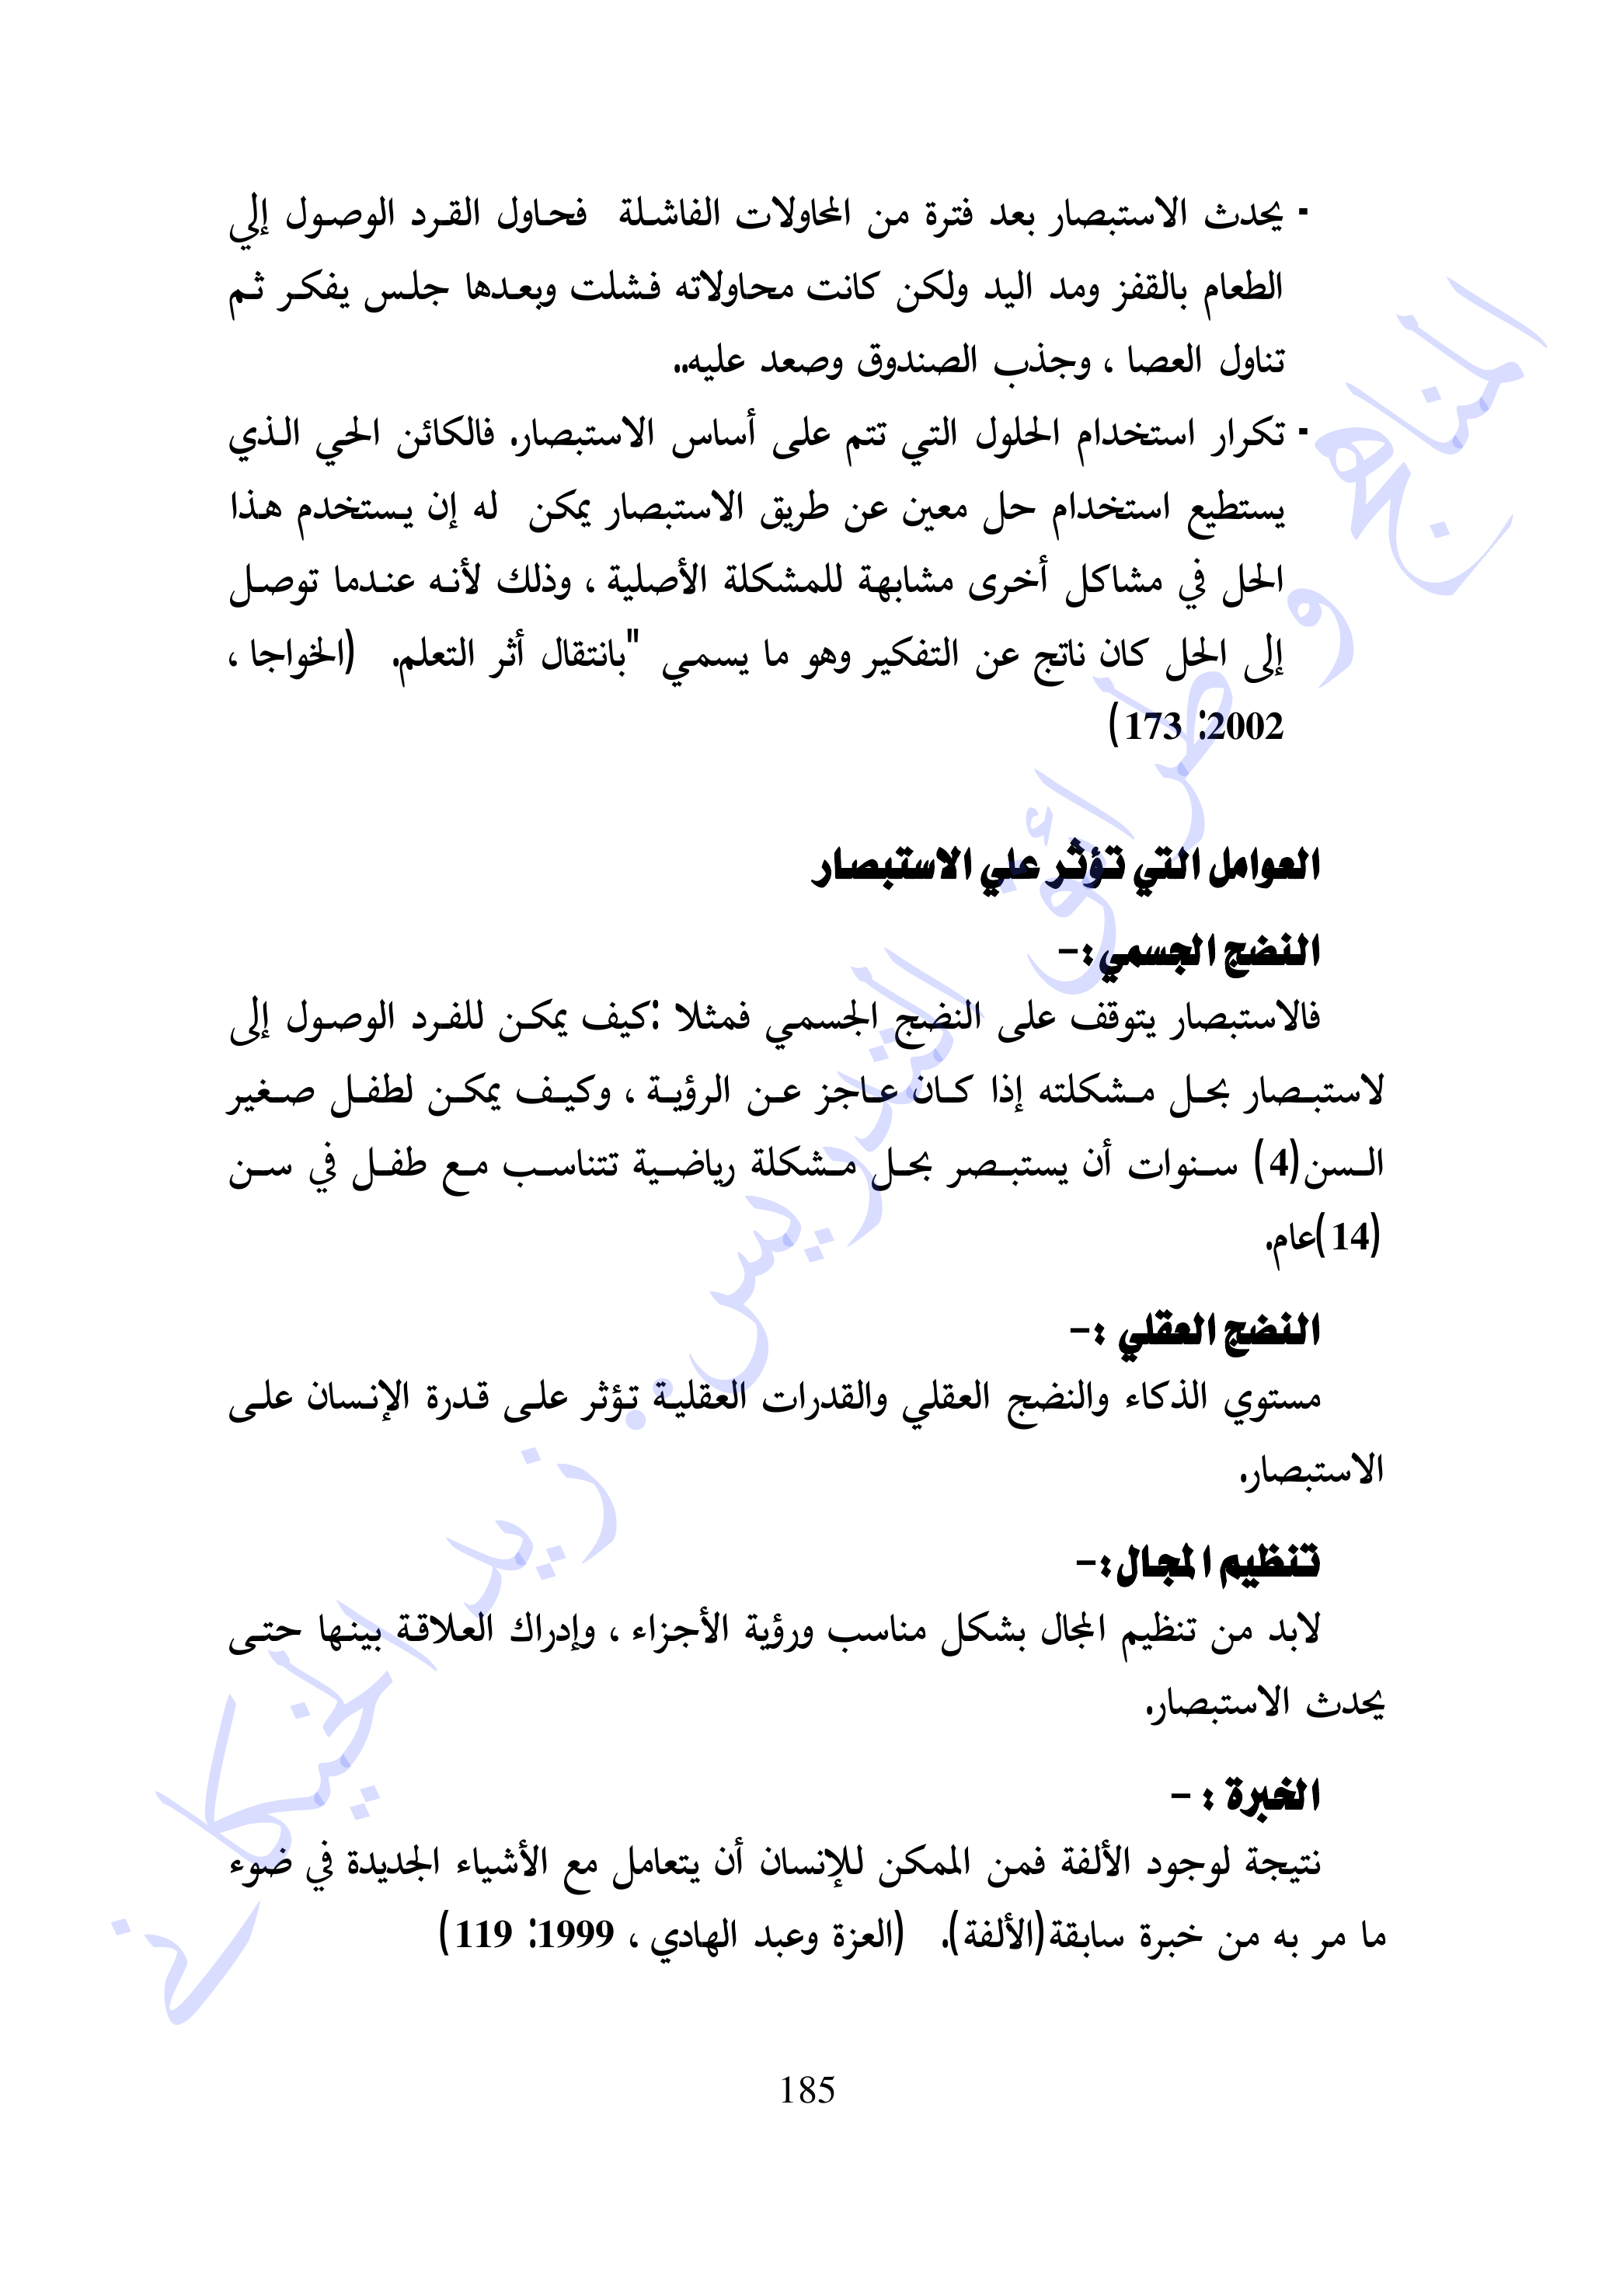 - يحدث الاستبصار بعد فترة من المحاولات الفاشلة فحاول القرد الوصول إلي
الطعام بالقفز ومد اليد ولكن كانت محاولاته فشلت وبعدها جلس يفكر ثم
تناول العصا ، وجذب الصندوق وصعد عليه..
- تكرار استخدام الحلول التي تتم على أساس الاستبصار. فالكائن الحي الذي
يستطيع استخدام حل معين عن طريق الاستبصار يمكن له إن يستخدم هذا
الحل في مشاكل أخرى مشابهة للمشكلة الأصلية ، وذلك لأنه عندما توصل
إلى الحل كان ناتج عن التفكير وهو ما يسمي "بانتقال أثر التعلم. (الخواجا ،
2002: 173)
العوامل التي تؤثر علي الاستبصار
النضج الجسمي :-
فالاستبصار يتوقف على النضج الجسمي فمثلا :كيف يمكن للفرد الوصول إلى
لاستبصار بحل مشكلته إذا كان عاجز عن الرؤية ، وكيف يمكن لطفل صغير
السن(4) سنوات أن يستبصر بحل مشكلة رياضية تتناسب مع طفل في سن
(14)عام.
النضج العقلي :-
مستوي الذكاء والنضج العقلي والقدرات العقلية تؤثر على قدرة الإنسان على
الاستبصار.
تنظيم المجال :-
لابد من تنظيم المجال بشكل مناسب ورؤية الأجزاء ، وإدراك العلاقة بينها حتى
يحدث الاستبصار.
الخبرة : -
نتيجة لوجود الألفة فمن الممكن للإنسان أن يتعامل مع الأشياء الجديدة في ضوء
ما مر به من خبرة سابقة(الألفة). (العزة وعبد الهادي ، 1999: 119)
185
المناهج و طرائق التدريس. زيد الخيكاني